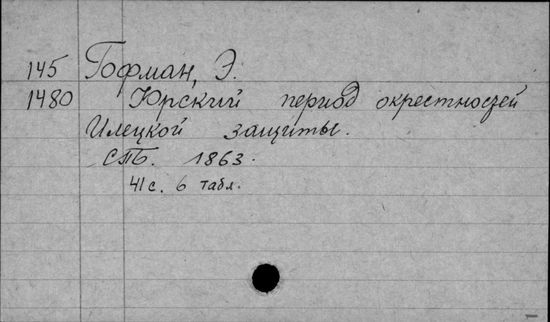 145 Гофман, Э.
1480 Юрский период окрестностей
Илецкой защиты.
СПБ. 1863.
41 с. 6 табл.